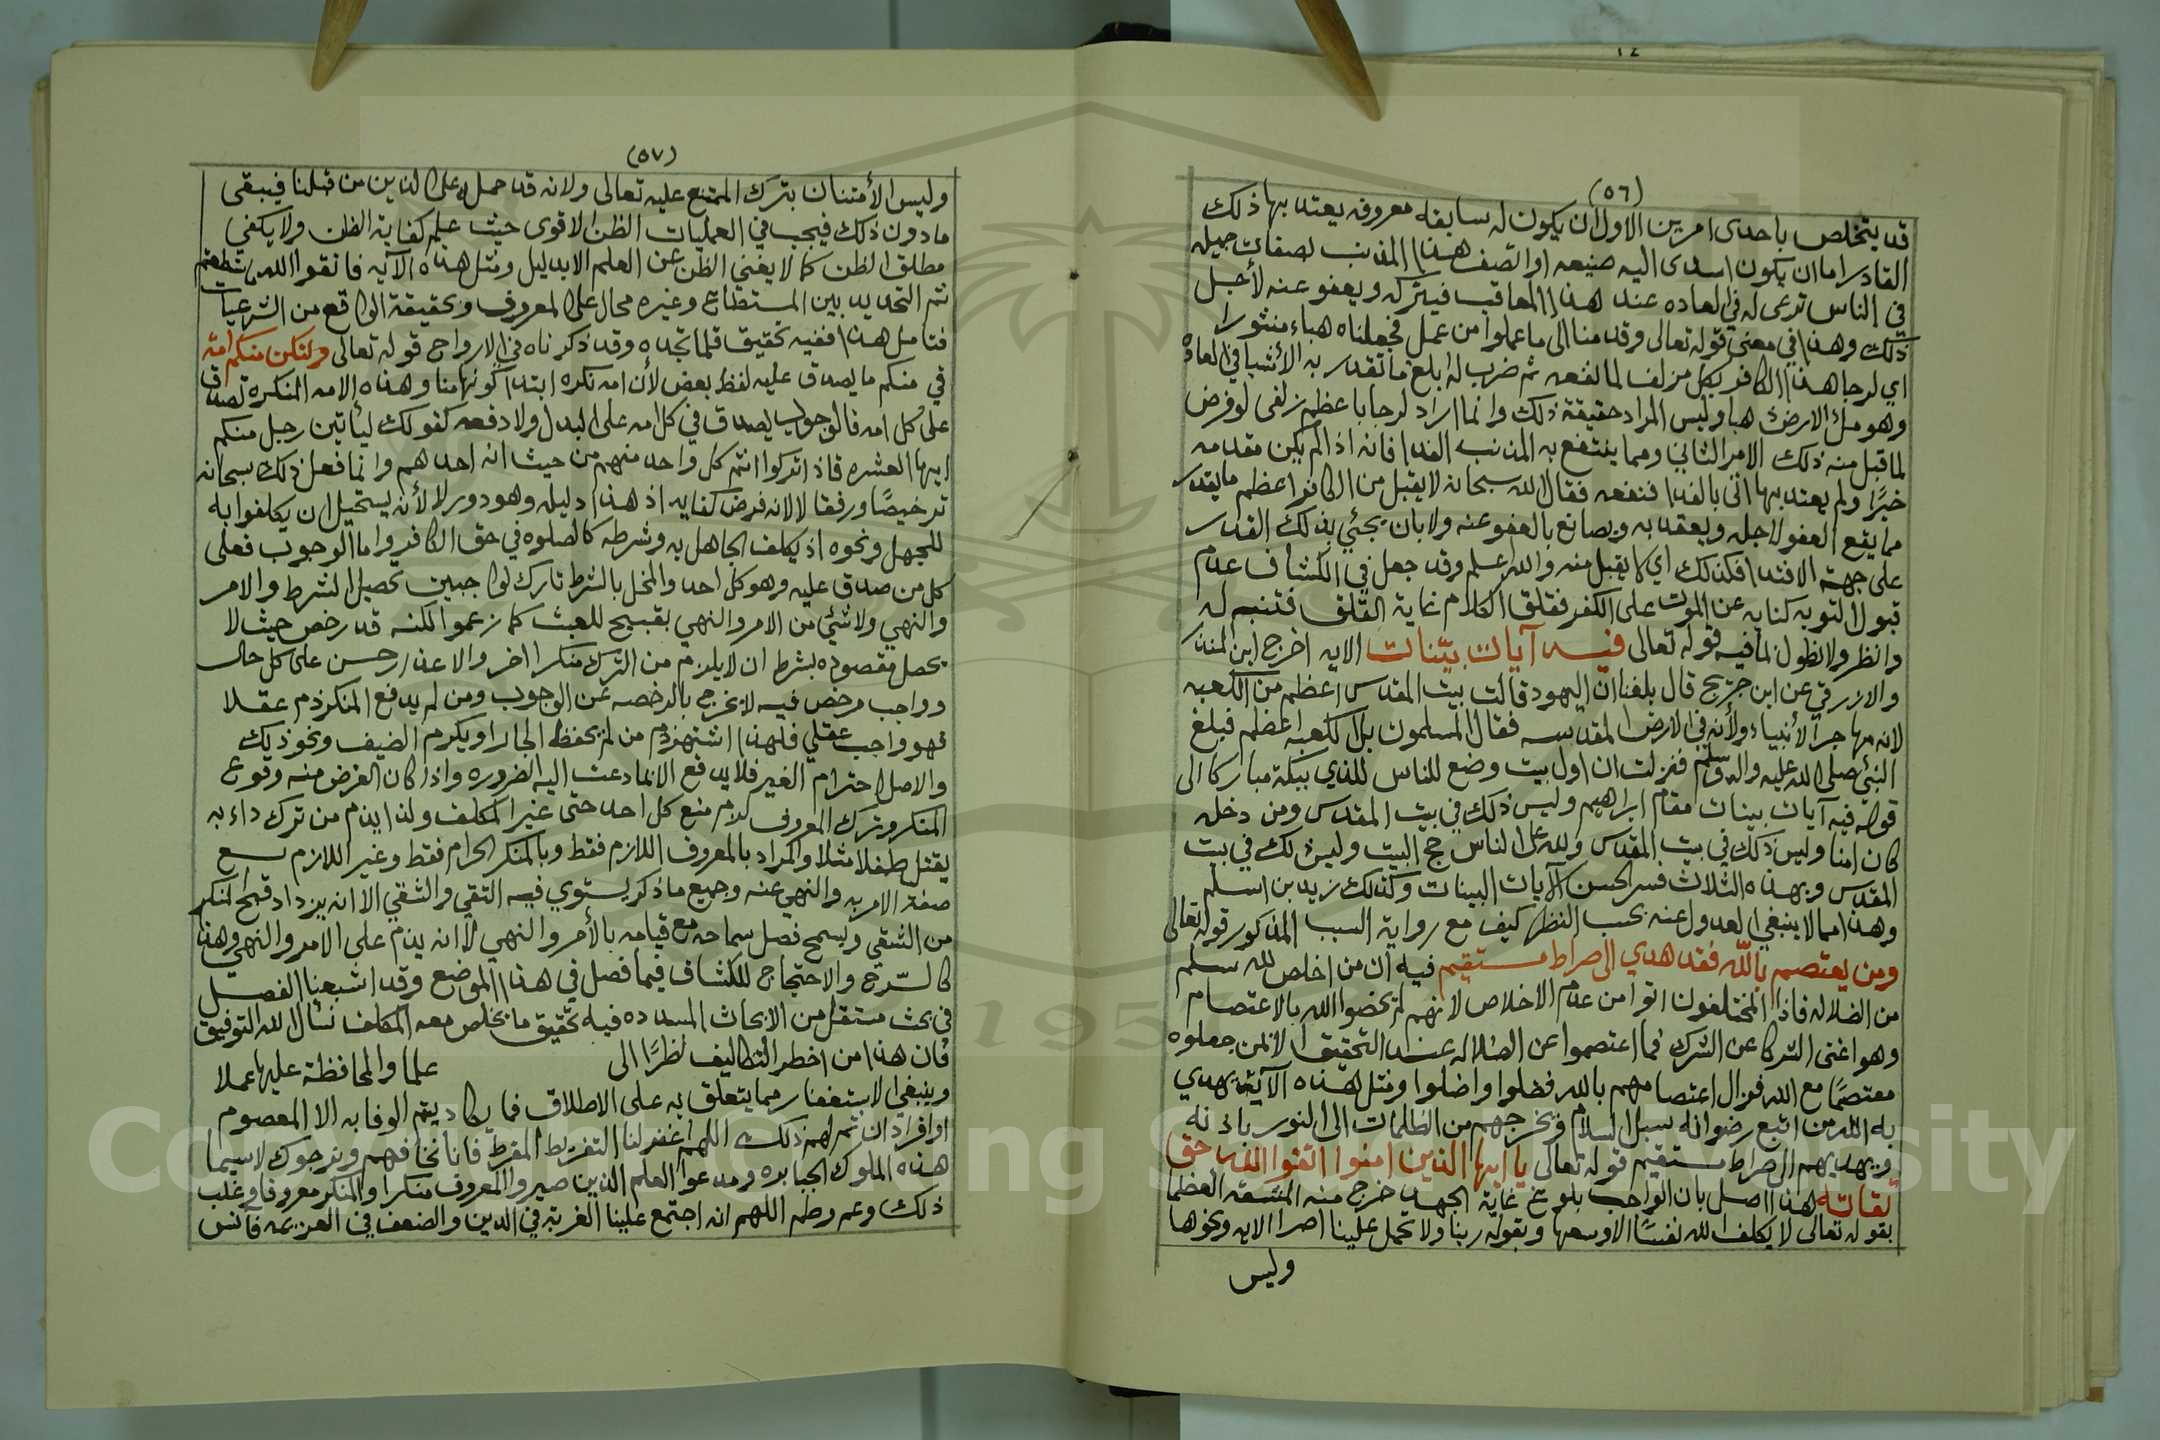 (٥٦)
قد يتخلص باحدى امرين الاول ان يكون له سابقه معروفه يعتد بها ذلك
القادر اما ان يكون اسدى اليه صنيعه او اتصف هذا المذنب لصفات جميله
في الناس ترعى له في العاده عند هذا المعاقب فيتركه ويعفو عنه لأجل
ذلك وهذا في معنى قوله تعالى وقدمنا الى ما عملوا من عمل فجعلناه هباء منثورا
اي لو جا هذا الكافر بكل مزلف لما نفعه ثم ضرب له ابلغ ما تقدر به الأشيا في العاده
وهو ملئ الارض هبا وليس المراد حقيقة ذلك وانما اراد لو جا باعظم زلفى لو فرض
لما قبل منه ذلك الامر الثاني ومما ينتفع به المذنب الفدا فانه اذا لم يكن مقدمه
خيرًا ولم يعتد بها اتى بالفدا فنفعه فقال الله سبحانه لا يقبل من الكافر اعظم ما يقدر
مما يقع العفو لاجله ويعقد به ويصانع بالعفو عنه ولا بان يجئي بذلك القدر
على جهة الافتدا فكذلك اي لا يقبل منه والله اعلم وقد جعل في الكشاف عدم
قبول التوبه كنايه عن الموت على الكفر فقلق الكلام نماية القلق فتنبه له
وانظر ولا نطول لما فيه قوله تعالى فيه آيات بيّنات الايه اخرج ابن المنذر
والازرقي عن ابن جريج قال بلغنا ان اليهود قالت بيت المقدس اعظم من الكعبه
لانه مهاجر الأنبياء ولأنه في الارض المقدسه فقال المسلمون بل الكعبه اعظم فبلغ
النبي صلى الله عليه واله وسلم فنزلت ان اول بيت وضع للناس للذي ببكة مباركا الى
قوله فيه آيات بينات مقام ابراهيم وليس ذلك في بيت المقدس ومن دخله
كان امنا وليس ذلك في بيت المقدس ولله على الناس حج البيت وليس ذلك في بيت
المقدس وبهذه الثلاث فسر الحسن الآيات البينات وكذلك زيد بن اسلم
وهذا مما لا ينبغي العدول عنه بحسب النظر كيف مع رواية السبب المذكور قوله تعالى
ومن يعتصم بالله فقد هدي الى صراط مستقيم فيه ان من اخلص لله سلم
من الضلاله فاذا المختلفون اتوا من عدم الاخلاص لانهم لم يخضوا الله بالاعتصام
وهو اغنى الشركا عن الشرك فما اعتصموا عن الضلاله عند التحقيق الا لمن جعلوه
معتصمًا مع الله فزال اعتصامهم بالله فضلوا واضلوا ومثل هذه الآية يهدي
به الله من اتبع رضوانه سبل السلام ويخرجهم من الظلمات الى النور باذنه
ويهديهم الى صراط مستقيم قوله تعالى يا ايها الذين امنوا اتقوا الله حق
تقاته هذا اصل بان الواجب بلوغ غاية الجهد خرج منه المشقه العظما
بقوله تعالى لا يكلف الله نفسًا الا وسعها وبقوله ربنا ولا تحمل علينا اصرا الايه ونحوها
وليس
(٥٧)
وليس الأمتنان بترك الممتنع عليه تعالى ولانه قد حمله على الذين من قبلنا فيبقى
ما دون ذلك فيجب في العمليات الظن الاقوى حيث علم كفاية الظن ولا يكفي
مطلق الظن كما لا يغني الظن عن العلم الا بدليل ومثل هذه الآيه فاتقوا الله ما استطعتم
ثم التحديد بين المستطاع وغيره محال على المعروف وبحقيقة الواقع من الشرعيات
فتامل هذا ففيه تحقيق قلما تجده وقد ذكرناه في الارواح قوله تعالى ولتكن منكم امة
في منكم ما يصدق عليه لفظ بعض لأن امه نكره ابتدا كونها منا وهذه الامه المنكره تصدق
على كل امه فالوجوب يصدق في كل امه على البدل ولا دفعه كقولك ليأتين رجل منكم
ايها العشره فاذا تركوا اثم كل واحد منهم من حيث انه احدهم وانما فعل ذلك سبحانه
ترخيصًا ورفقا لا لانه فرض كفايه اذ هذا دليله وهو دور لا لأنه يستحيل ان يكلفوا به
للجهل ونحوه اذ يكلف الجاهل به وشرطه كالصلوه في حق الكافر واما الوجوب فعلى
كل من صدق عليه وهو كل احد والمخل بالشرط تارك لواجبين تحصيل الشرط والامر
والنهي ولا شئ من الامر والنهي بقبيح للعبث كما زعموا لكنه قد رخص حيث لا
يحصل مقصوده بشرط ان لا يلزم من الترك منكرا اخر والاعذار حسن على كل حال
وواجب مرخص فيه لا يخرج بالرخصه عن الوجوب ومن لم يدفع المنكر ذم عقلا
فهو واجب عقلي فلهذا اشتهر ذم من لم يحفظ الجار او يكرم الضيف ونحو ذلك
والاصل احترام الغير فلا يدفع الا لما دعت اليه الضروره واذا كان الغرض منه وقوع
المنكر وترك المعروف لام منع كل احد حتى غير المكلف ولذا يذم من ترك داءبه
يقتل طفلا مثلا والمراد بالمعروف اللازم فقط وبالمنكر الحرام فقط وغير اللازم يسع
صفة الامر به والنهي عنه وجميع ما ذكر يستوي فيه التقي والشقي الا انه يزداد قبح المنكر
من الشقي ويسمح فصل سماحه مع قيامه بالأمر والنهي لا انه يذم على الامر والنهي وهذا
كالشرح والاحتجاج للكشاف فيما فصل في هذا الموضع وقد اشبعنا الفصل
في بحث مستقل من الابحاث المسدده فيه تحقيق ما يخلص معه المكلف نسأل الله التوفيق
فان هذا من اخطر التكاليف نظرًا الى علما والمحافظة عليها عملا
وينبغي الاستغفار مما يتعلق به على الاطلاق فما يكاد يتم الوفا به الا المعصوم
او افراد ان تم لهم ذلك اللهم اغفر لنا التفريط المفرط فانا نخافهم ونرجوك لاسيما
هذه الملوك الجبابره ومدعوا العلم الذين صيروا المعروف منكرا والمنكر معروفا وغلب
ذلك وعم وطم اللهم انه اجتمع علينا الغربة في الدين والضعف في العزيمه فآنس